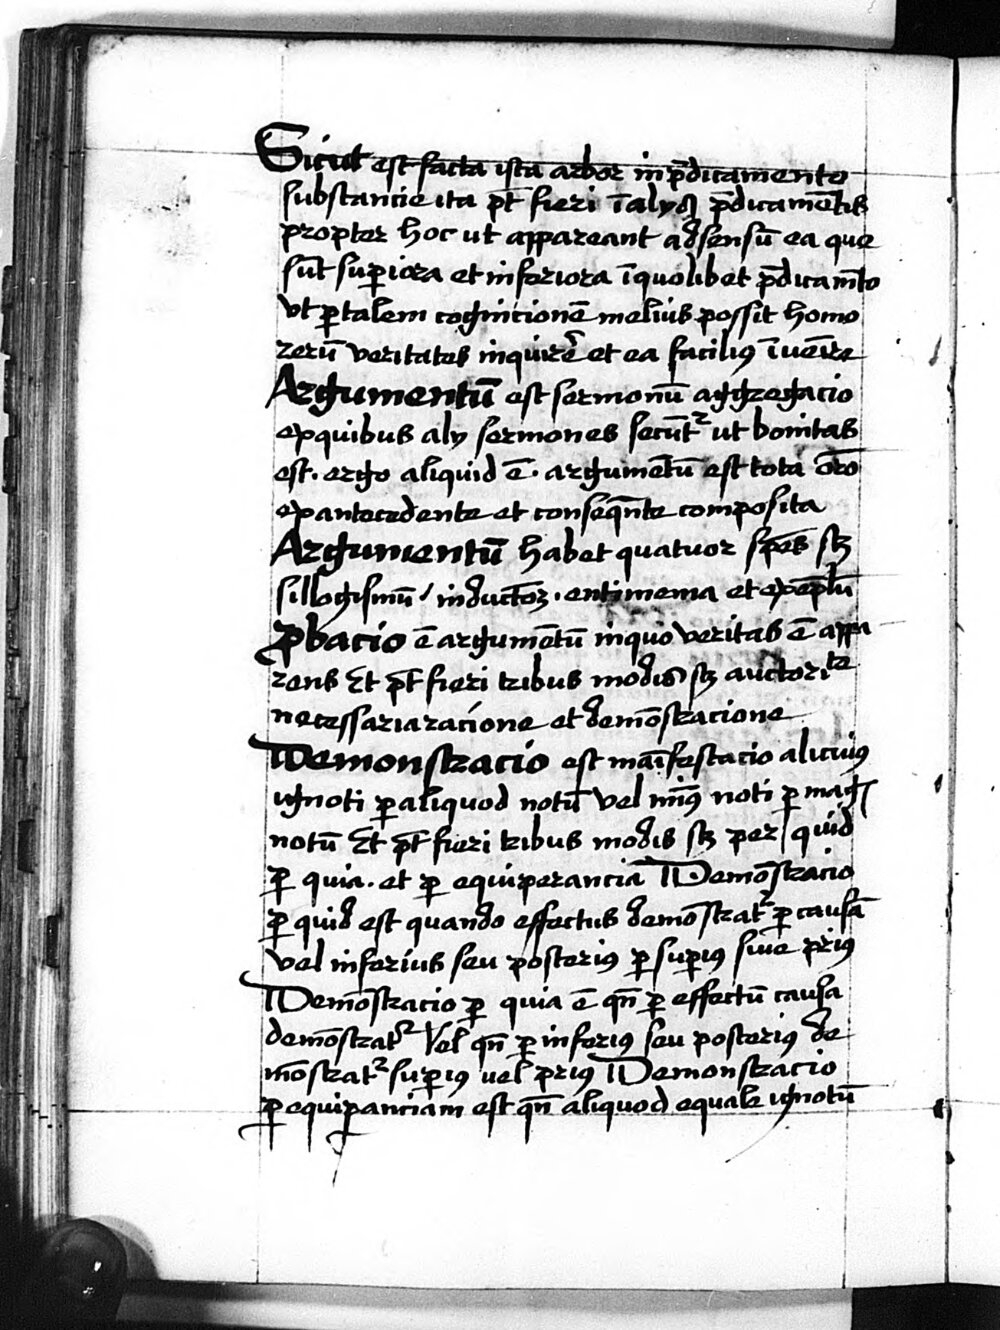 Sicut est facta ista arbor in p̄dicamento
substancie ita pt̄ fieri ī alijs p̄dicamētis
propter hoc ut appareant ad sensū ea que
sūt suꝑiora et inferiora ī quolibet p̄dicamēto
vt ꝑ talem cognicionē melius possit homo
rerū veritates inquirē et ea facilius īuenire
Argumentū est sermonū aggregacio
ex quibus alij sermones secūtr ut bonitas
est. ergo aliquid ē. argumētū est tota or̄o
ex antecedente et conseqn̄te composita
Argumentū habet quatuor sp̄es scꝫ
sillogismū / inductōꝫ. entimema et exēplū
ꝓbacio ē argumētū in quo veritas ē appa
rens Et pt̄ fieri tribus modis scꝫ auctorite
necessaria racione et demōstracione
Demonstracio est māifestacio alicuiꝰ
ignoti ꝑ aliquod notū vel minꝰ noti ꝑ mag
notū Et pt̄ fieri tribus modis scꝫ per quid
ꝑ quia. et ꝑ equiperanciā Demōstracio
ꝑ quid est quando effectus demōstratr ꝑ causā
vel inferius seu posteriꝰ ꝑ suꝑiꝰ siue priꝰ
Demōstracio ꝑ quia ē qn̄ ꝑ effectū causa
demōstratr Vel qn̄ ꝑ inferiꝰ seu posteriꝰ de
mōstratr suꝑiꝰ uel priꝰ Demonstracio
ꝑ equiꝑanciam est qn̄ aliquod equale ignotū